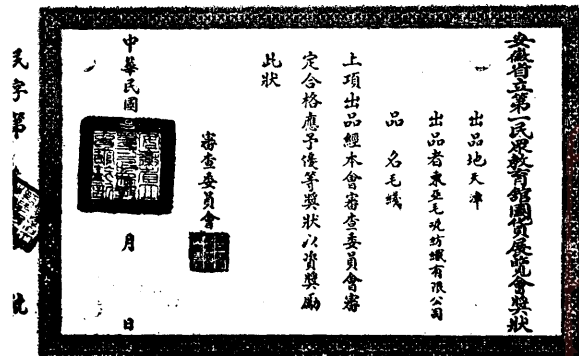 安徽省立第一民眾教育館國貨展覽會獎狀
出品地天津
出品者東亞毛呢紡織有限公司
品名毛綫
上項出品經本會審查委員會審
定合格應予優等獎狀以資獎勵
此狀
審查委員會
中華民國
月
日
民字第
號